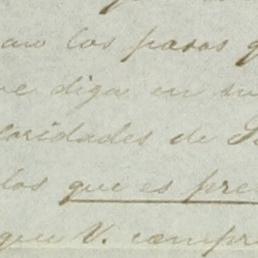 los pasos q
diga en su
laridades de
los que es pre
que V. compr